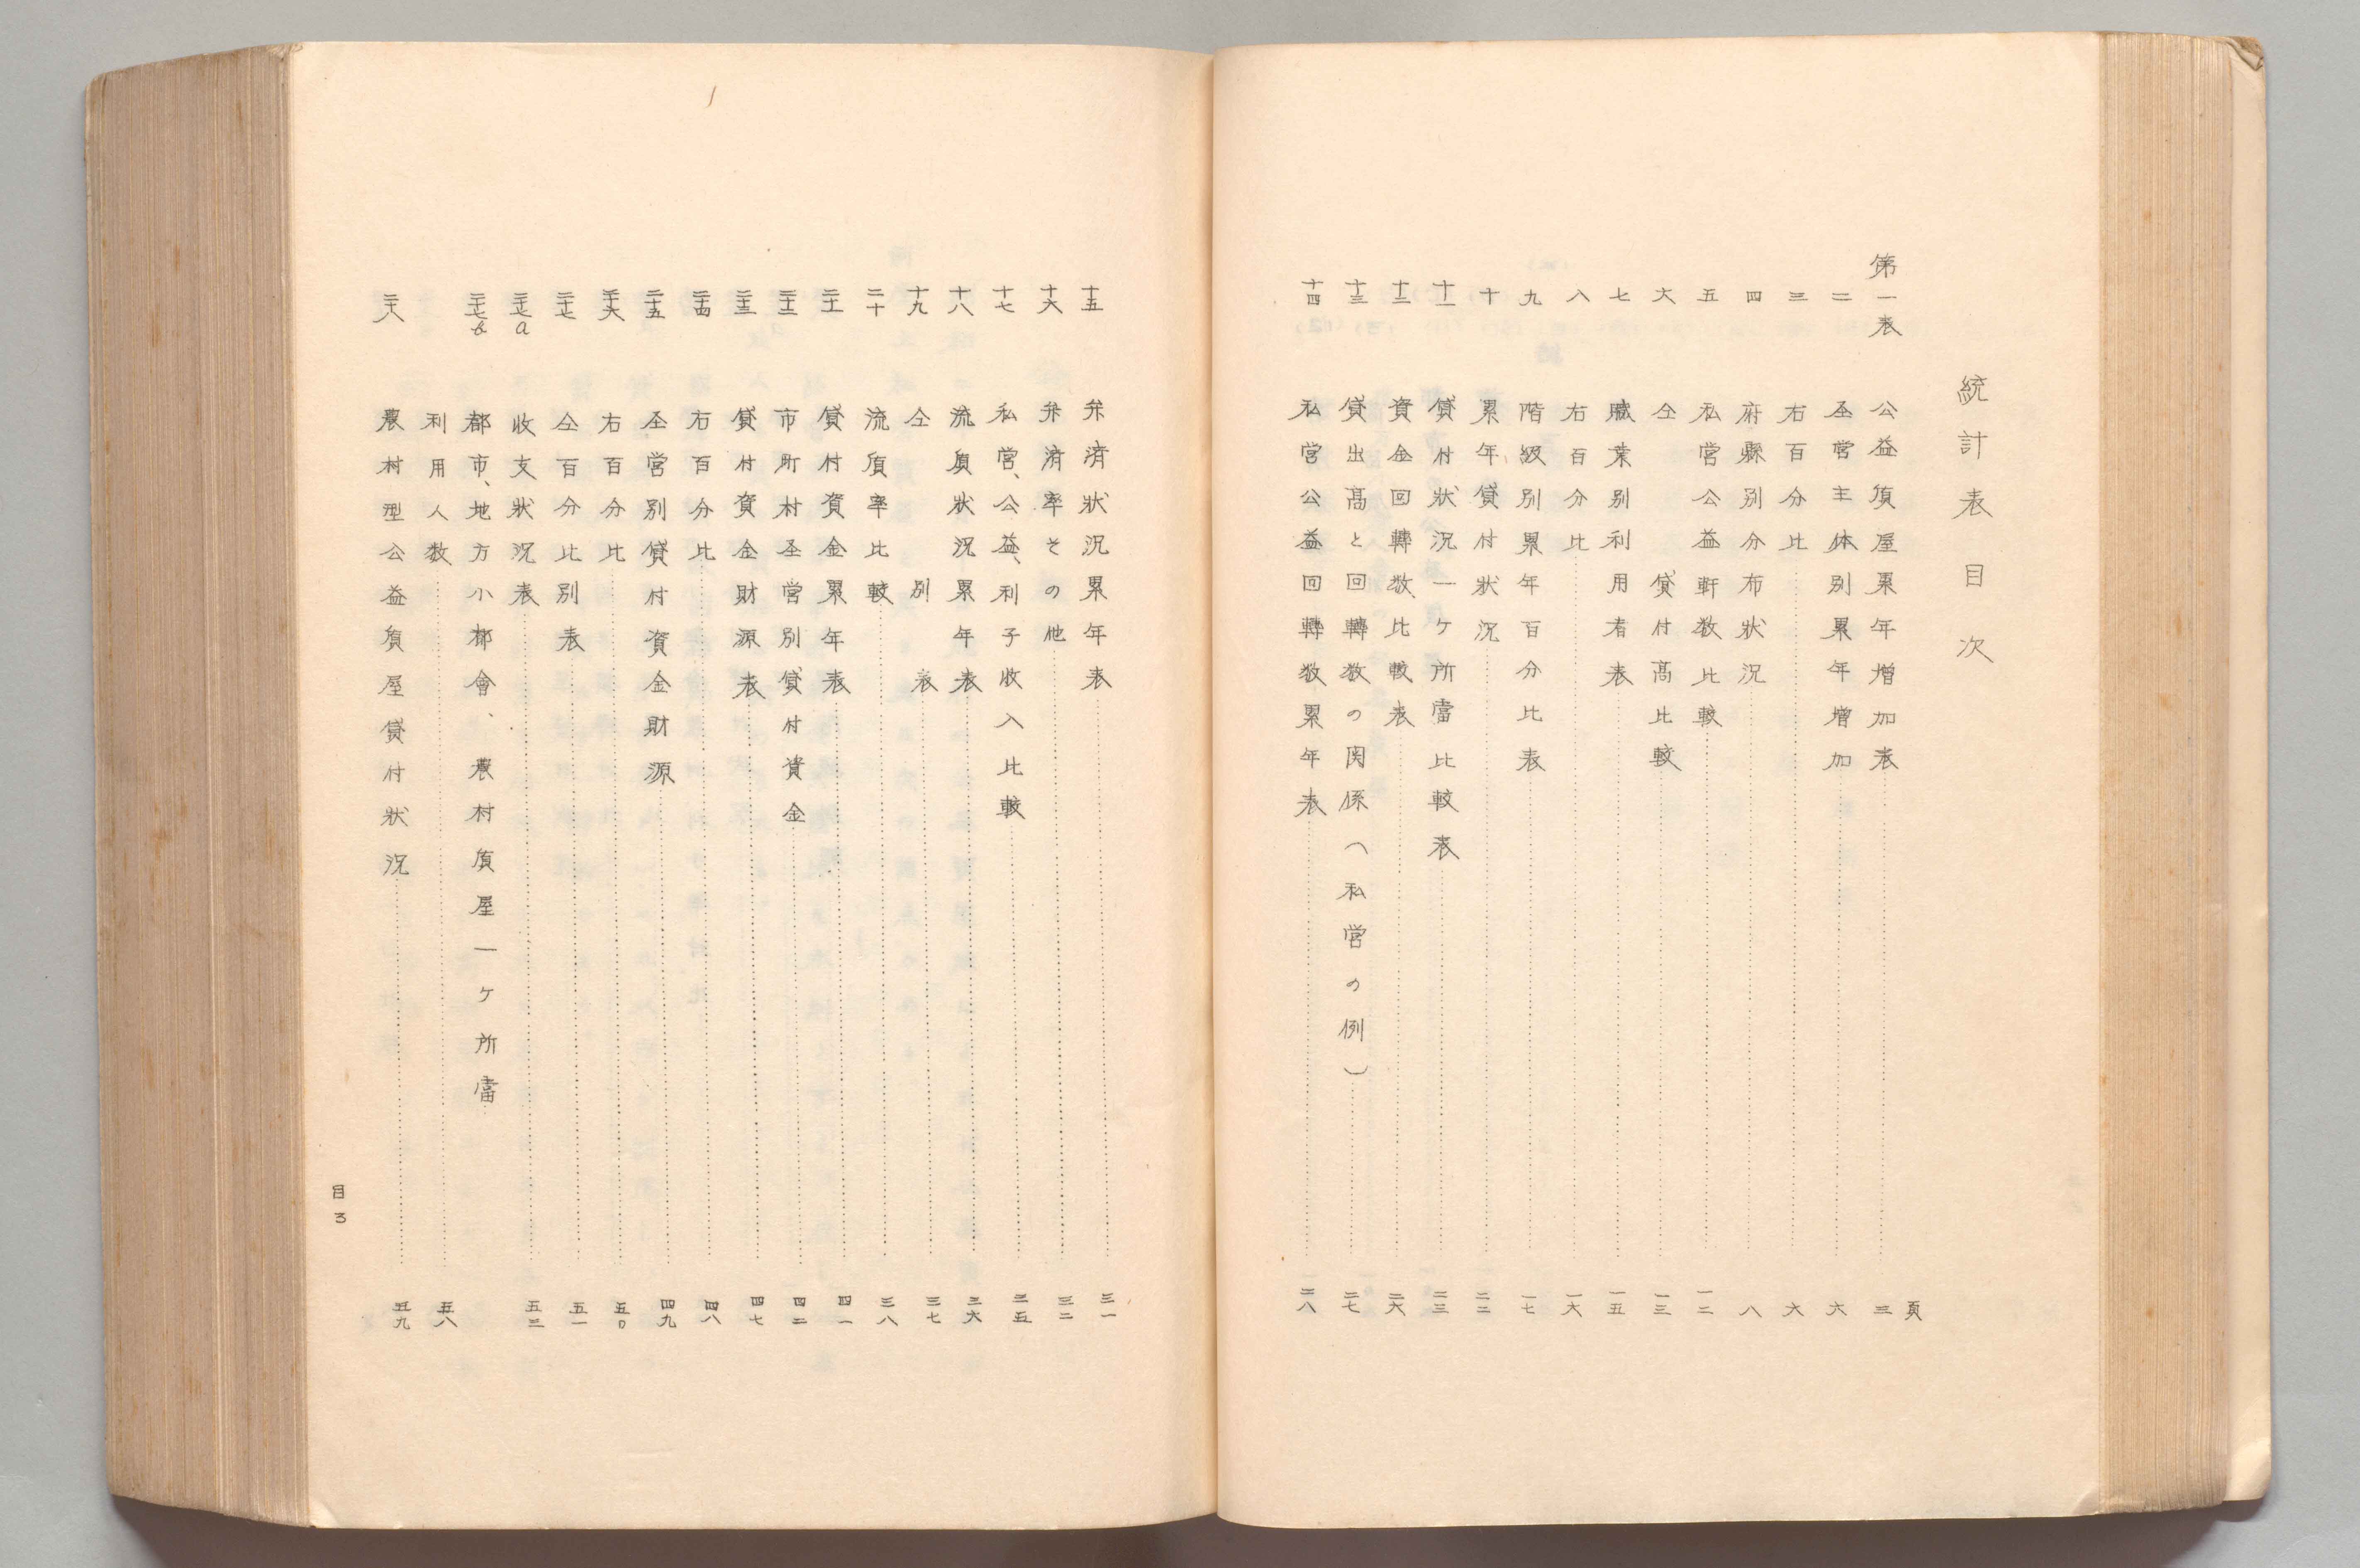 統計表目次
頁
第一表 公益質屋累年増加表 三
二 全営主体別累年増加 六
三 右百分比 六
四 府縣別分布状況 八
五 私営公益軒数比較 一二
六 仝 貸付高比較 一三
七 職業別利用者表 一五
八 右百分比 一六
九 階級別累年百分比表 一七
十 累年貸付状況 二二
十一 貸付状況一ヶ所當比較表 二三
十二 資金回轉数比較表 二六
十三 貸出高と回轉数の関係(私営の例) 二七
十四 私営公益回轉数累年表 二八
十五 弁済状況累年表 三一
十六 弁済率その他 三二
十七 私営、公益、利子收入比較 三五
十八 流質状況累年表 三六
十九 仝 別表 三七
二十 流質率比較 三八
二十一 貸付資金累年表 四一
二十二 市町村全営別貸付資金 四二
二十三 貸付資金財源表 四七
二十四 右百分比 四八
二十五 全営別貸付資金財源 四九
二十六 右百分比 五〇
二十七 仝百分比別表 五一
二十七a 收支状況表 五三
二十七b 都市、地方小都會、農村質屋一ヶ所當
利用人数 五八
二十八 農村型公益質屋貸付状況 五九
目3